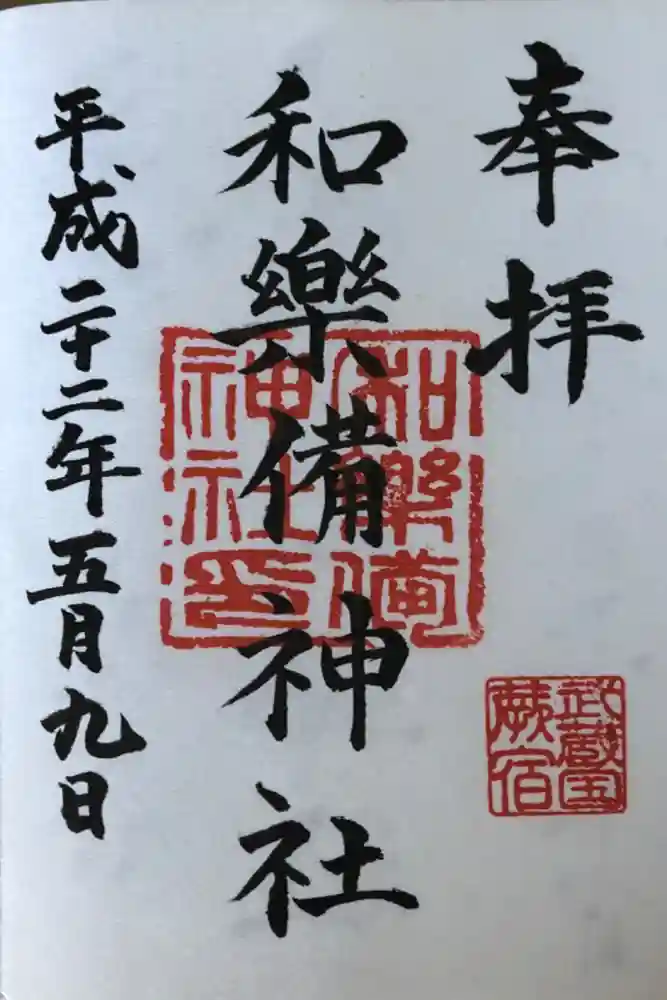 奉拝
武蔵国
蕨宿
和樂備神社
和樂備
神社印
平成二十二年五月九日